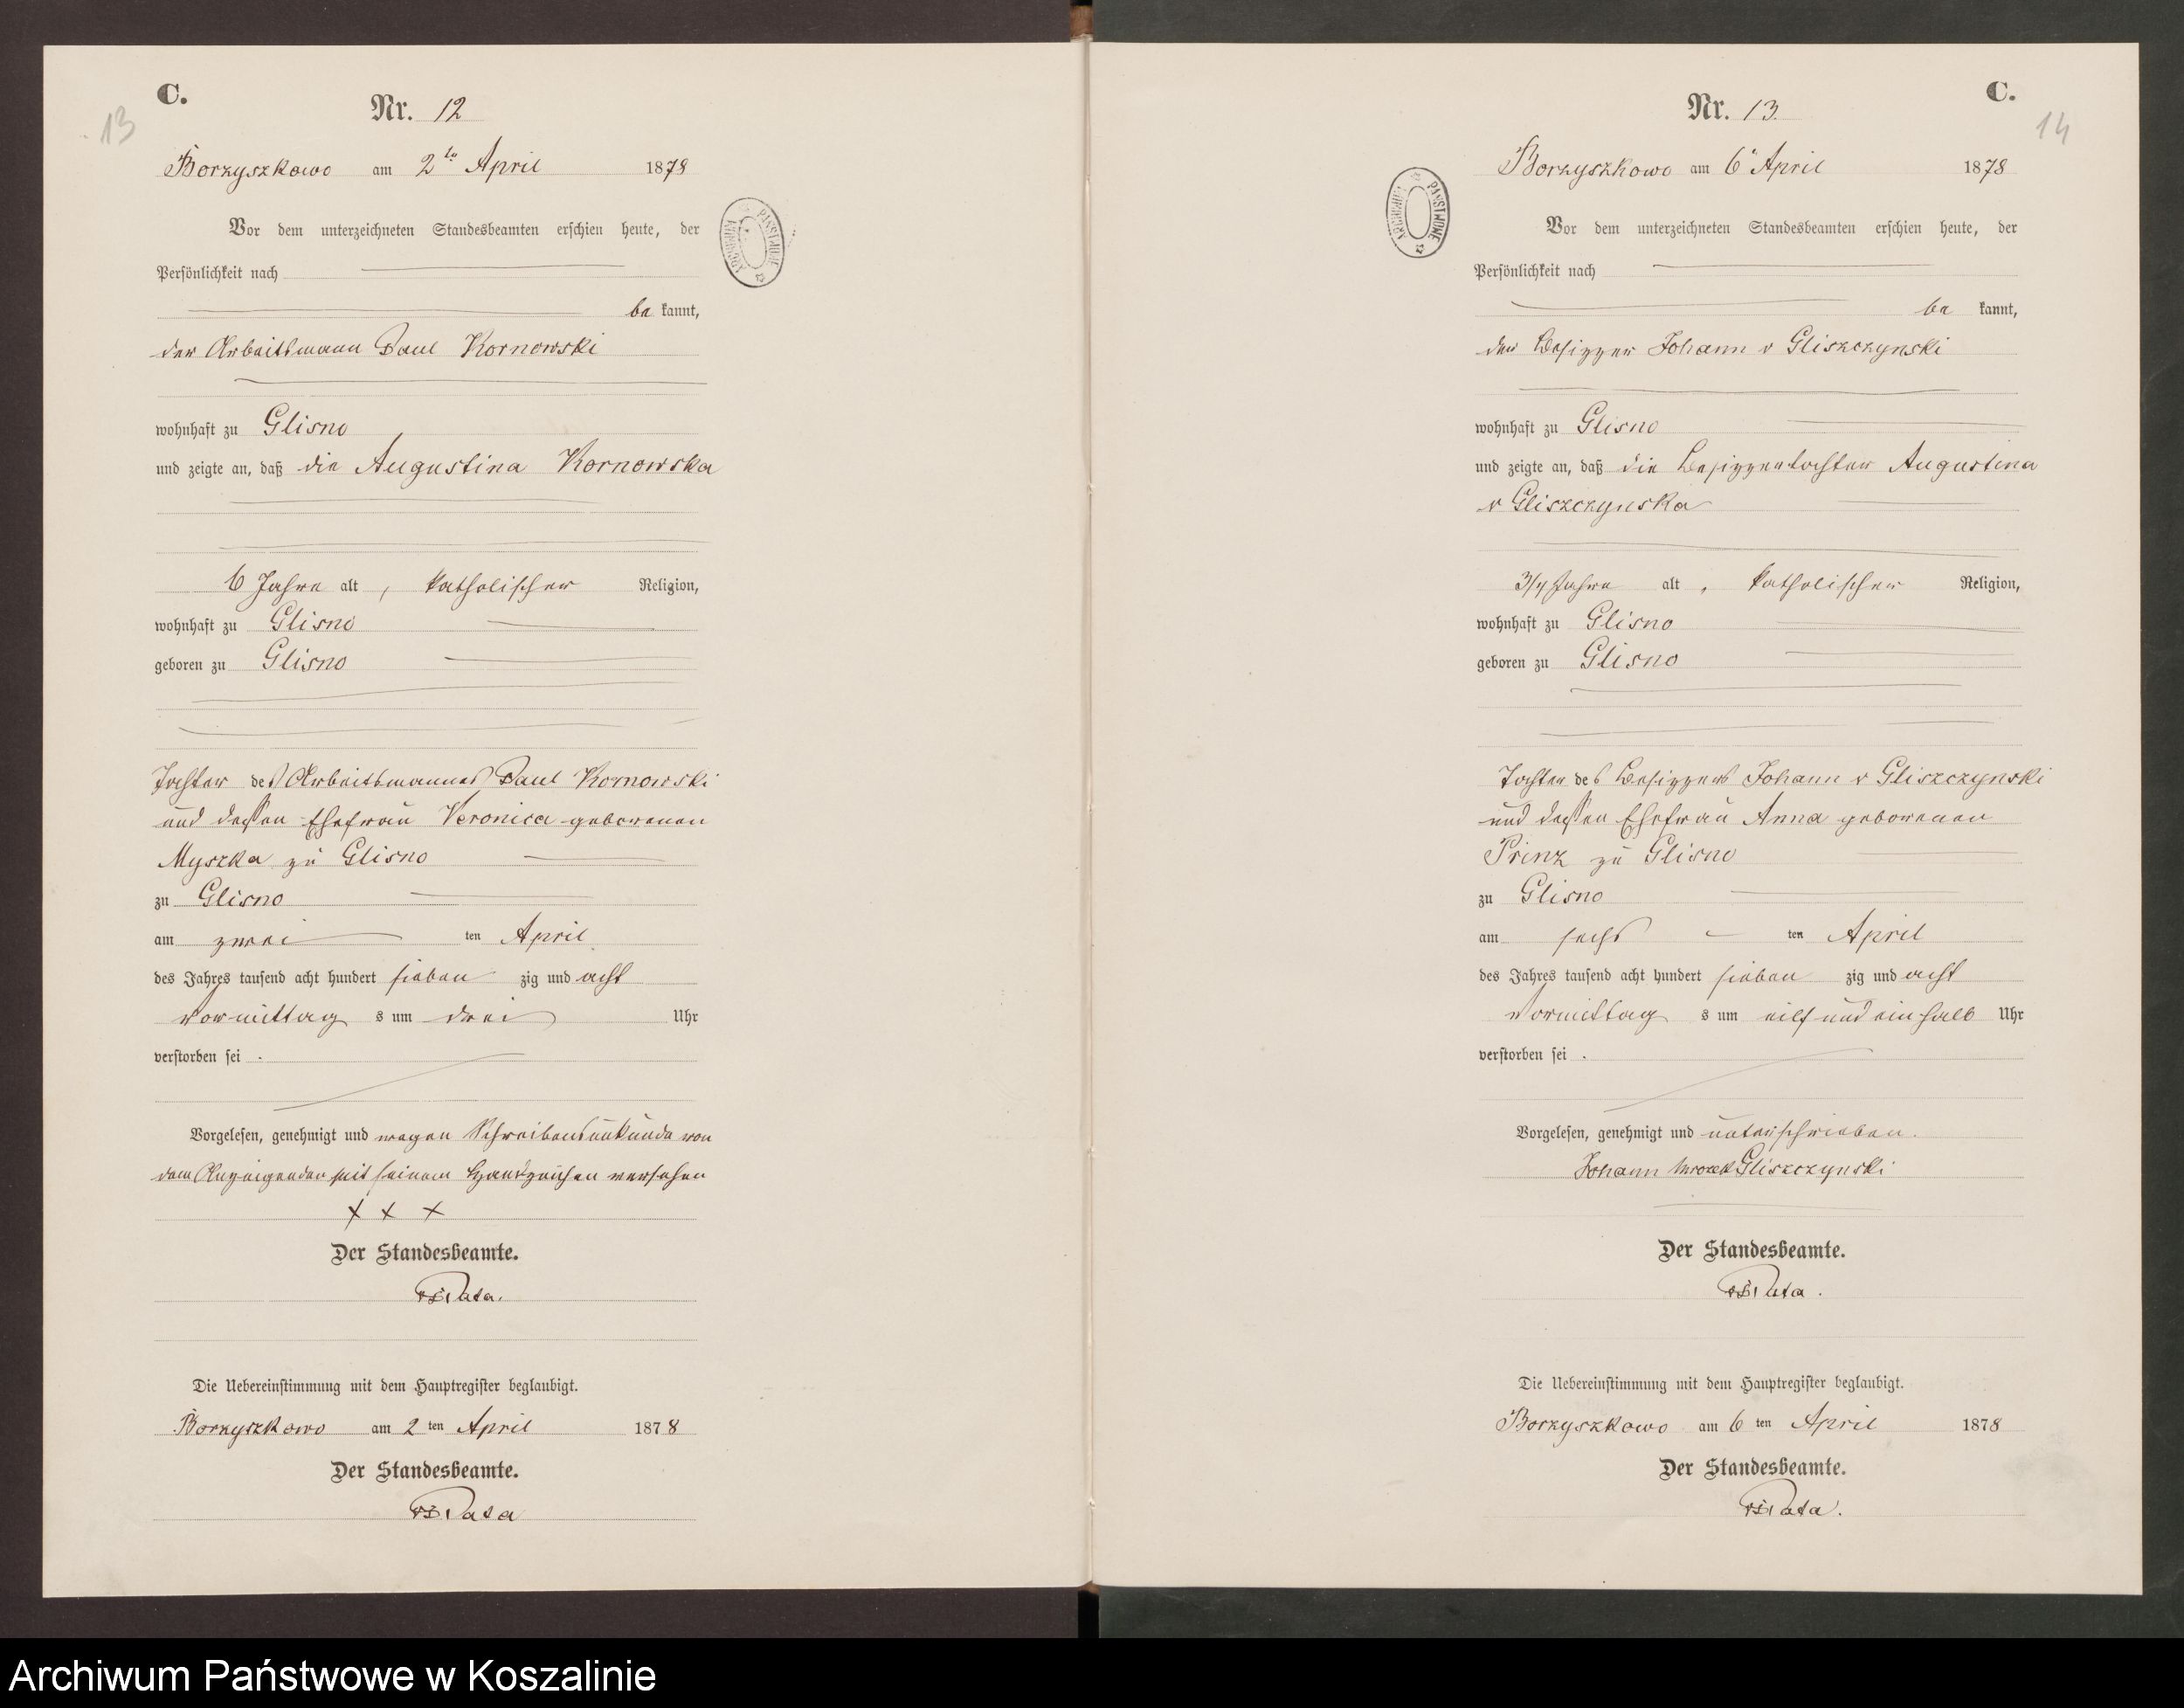 C.
13
Nr. 12
Borzyszkowo am 2ten April 1878
Vor dem unterzeichneten Standesbeamten erschien heute, der
Persönlichkeit nach
be kannt,
der Arbeitsmann Paul Kornowski
wohnhaft zu Glisno
und zeigte an, daß die Augustina Kornowska
6 Jahre alt, katholischer Religion,
wohnhaft zu Glisno
geboren zu Glisno
Tochter des Arbeitsmannes Paul Kornowski
und dessen Ehefrau Veronica geborenen
Myszka zu Glisno
zu Glisno
am zwei ten April
des Jahres tausend acht hundert sieben zig und acht
Vormittag s um drei Uhr
verstorben sei.
Vorgelesen, genehmigt und wegen Schreibensunkunde von
dem Anzeigenden mit seinem Handzeichen versehen
X X X
Der Standesbeamte.
Die Uebereinstimmung mit dem Hauptregister beglaubigt.
Borzyszkowo am 2 ten April 1878
Der Standesbeamte.
ARCHIWUM PAŃSTWOWE
C.
14
Nr. 13.
Borzyszkowo am 6 April 1878
Vor dem unterzeichneten Standesbeamten erschien heute, der
Persönlichkeit nach
be kannt,
der Besitzer Johann v Gliszczynski
wohnhaft zu Glisno
und zeigte an, daß die Besitzertochter Augustina
v Gliszczynska
3/4 Jahre alt, katholischer Religion,
wohnhaft zu Glisno
geboren zu Glisno
Tochter des Besitzers Johann v Gliszczynski
und dessen Ehefrau Anna geborenen
Prinz zu Glisno
zu Glisno
am sechs ten April
des Jahres tausend acht hundert sieben zig und acht
Vormittag s um eilf und ein halb Uhr
verstorben sei.
Vorgelesen, genehmigt und unterschrieben.
Johann Mrozek Gliszczynski
Der Standesbeamte.
Die Uebereinstimmung mit dem Hauptregister beglaubigt.
Borzyszkowo am 6 ten April 1878
Der Standesbeamte.
ARCHIWUM PAŃSTWOWE
Archiwum Państwowe w Koszalinie